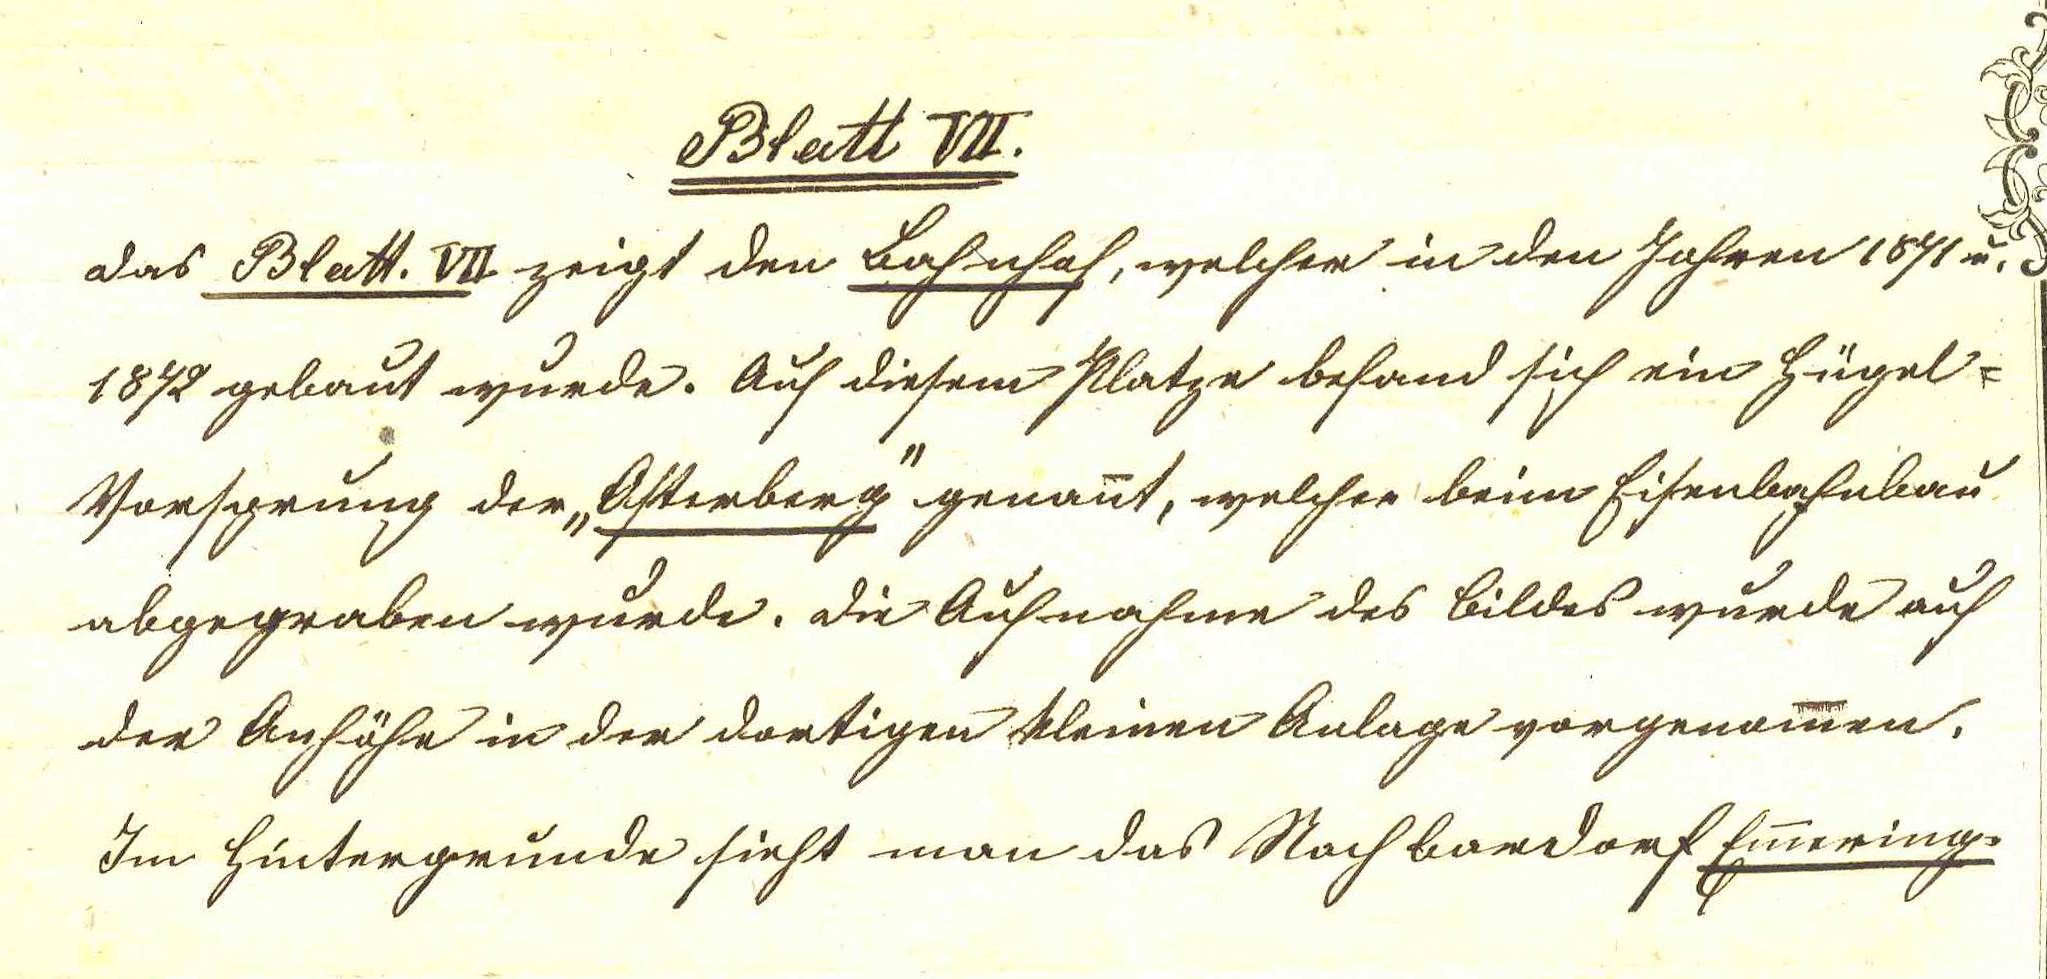 Blatt VII.
das Blatt. VII zeigt den Bahnhof, welcher in den Jahren 1871 u.
1872 gebaut wurde. Auf diesem Platze befand sich ein Hügel=
Vorsprung der „Asterberg" genan̄t, welcher beim Eisenbahnbau
abgegraben wurde. die Aufnahme des Bildes wurde auf
der Anhöhe in der dortigen kleinen Anlage vorgenom̄en.
Im Hintergrunde sieht man das Nachbardorf Em̄ering.